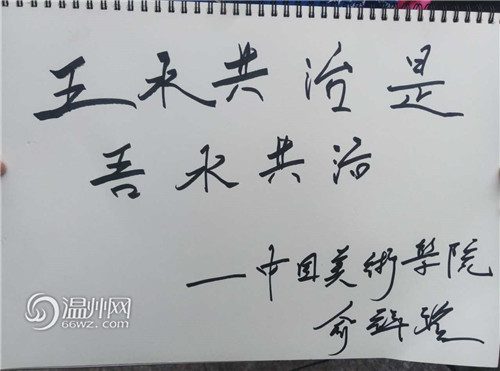 五水共治是
吾水共治
—中国美術學院
俞
温州网
66wz.com